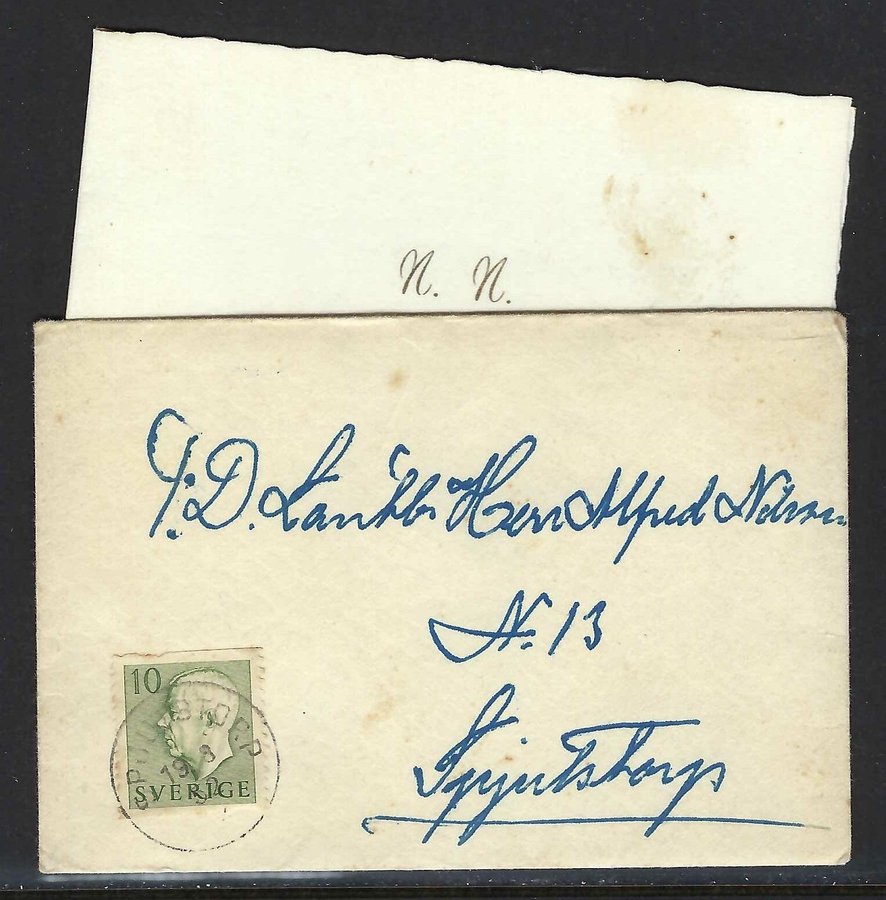 N. N.
T. D. Lantbr. Herr Alfred Nilsson
N: 13
Spjutstorp
10
SPJUTSTORP
19 8
SVERIGE